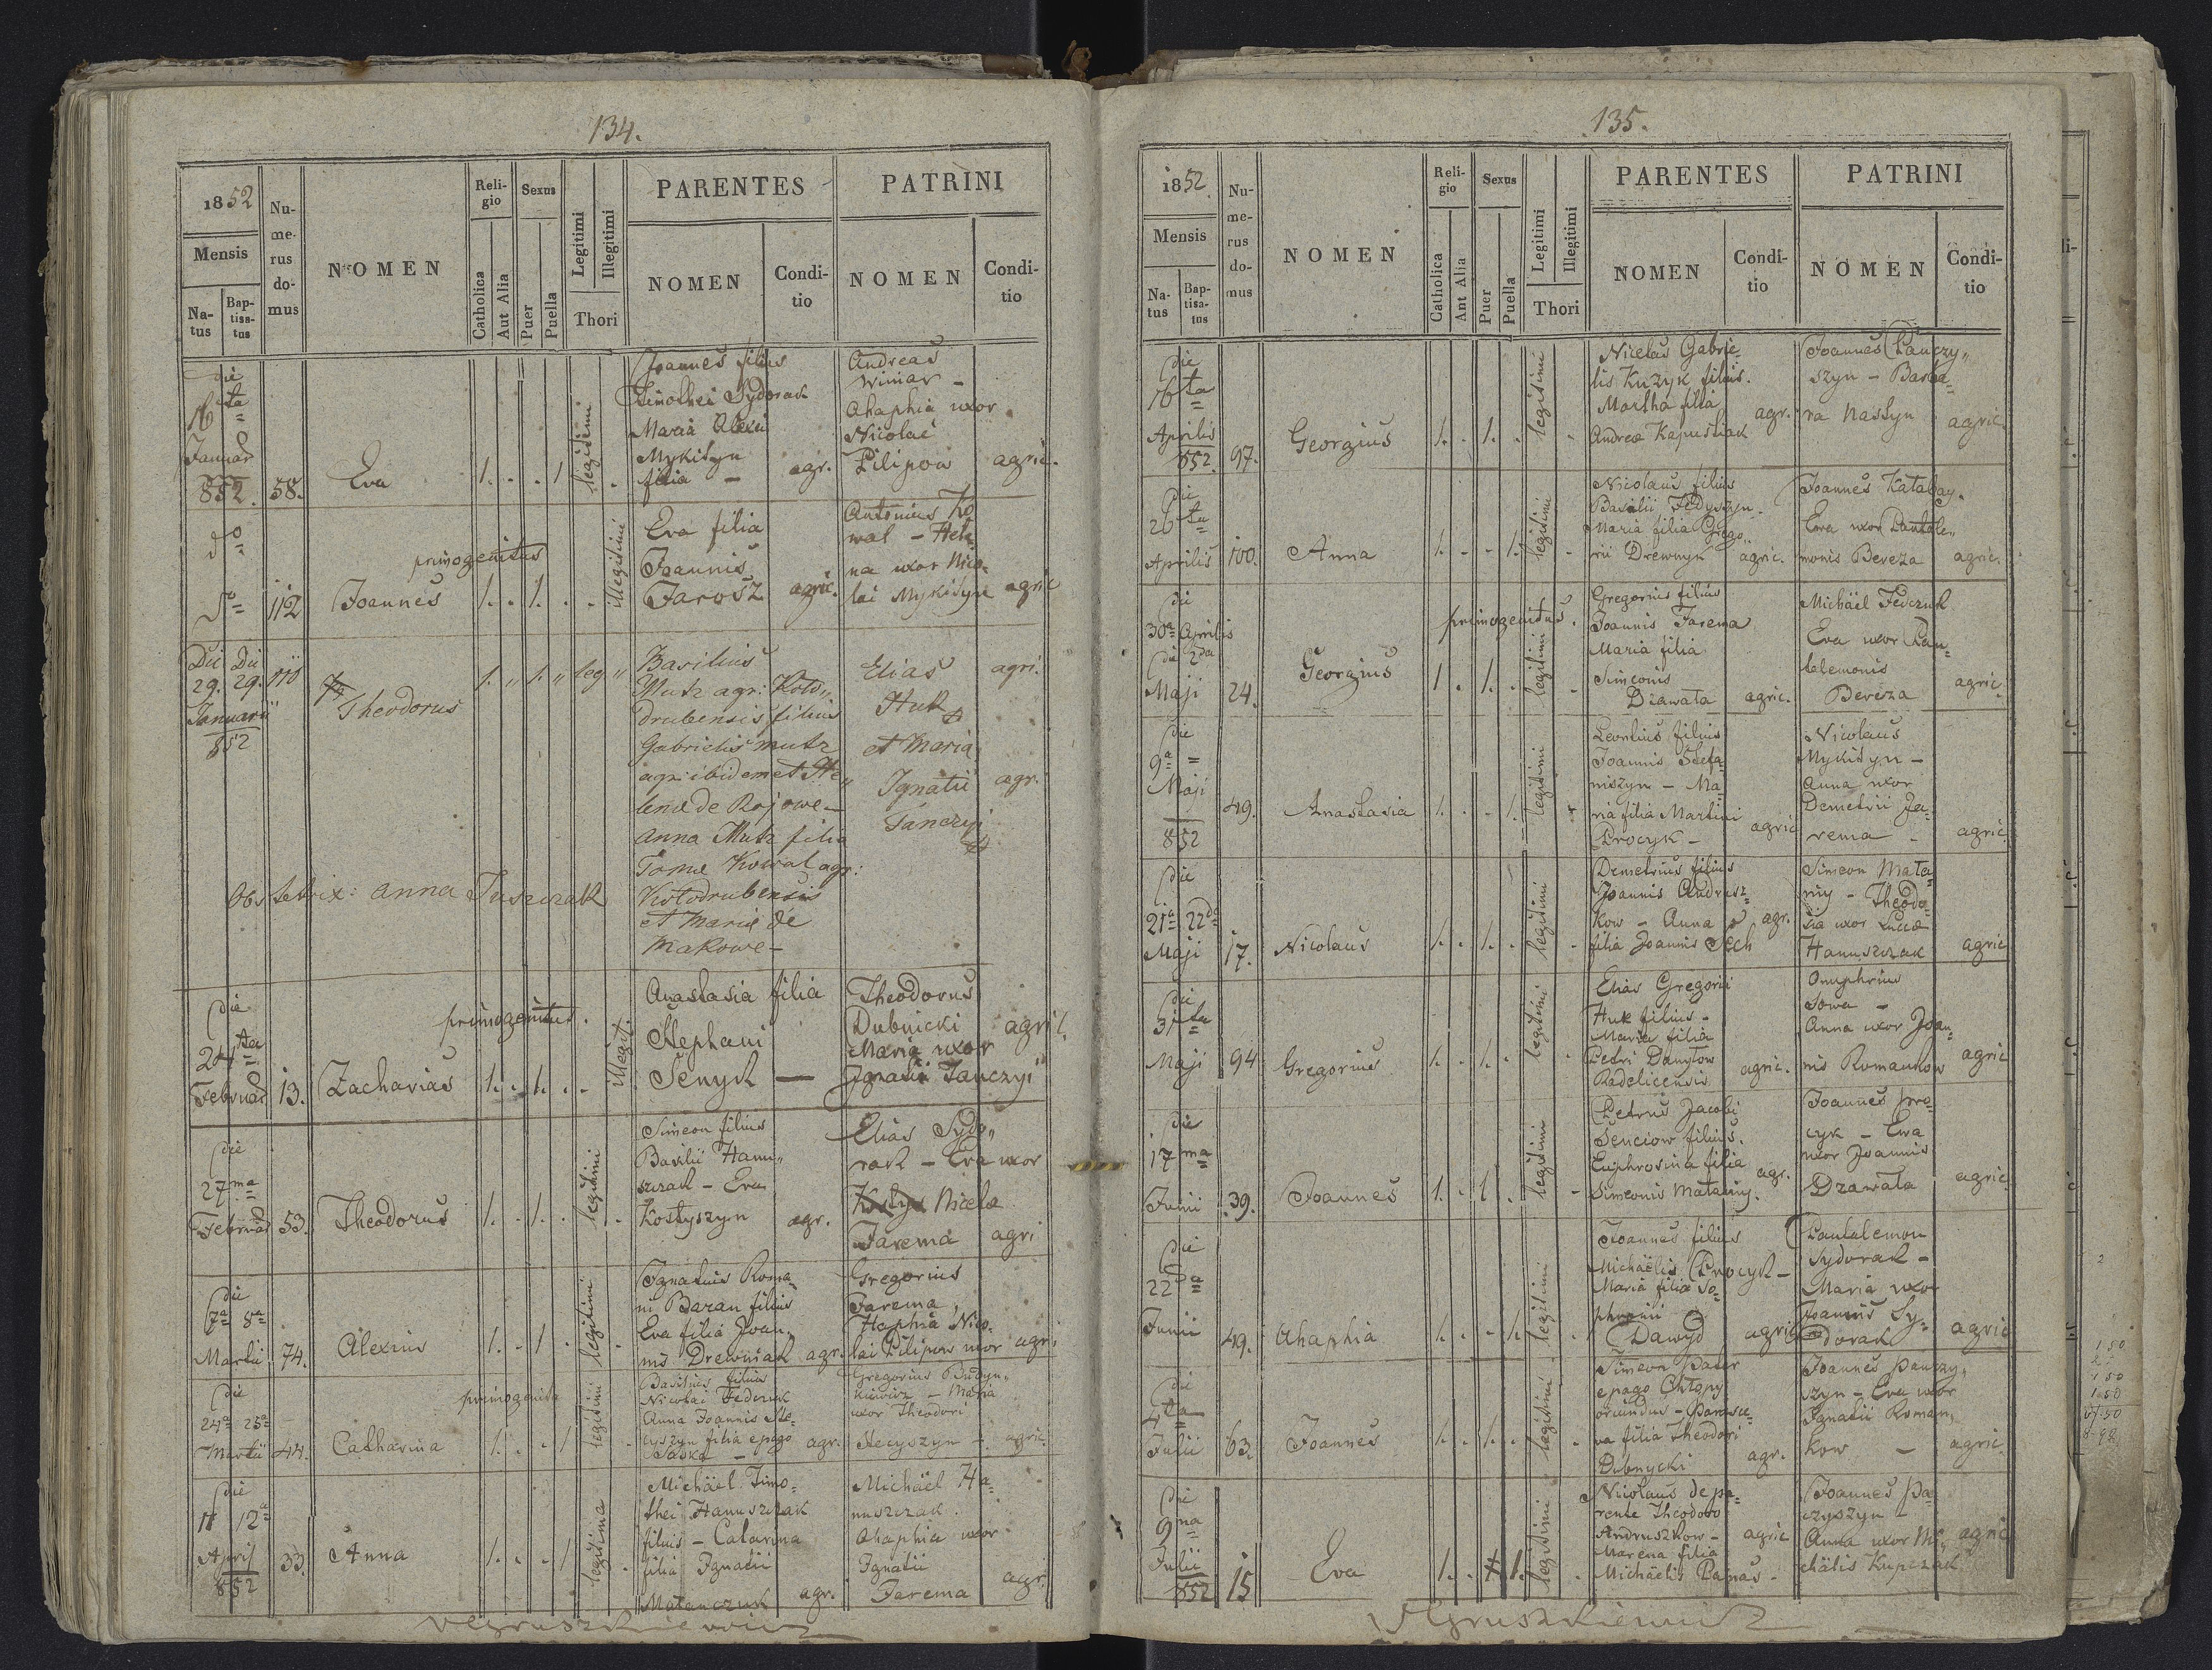 134.
1852
Mensis
Na-
tus
Bap-
tisa-
tus
Nu-
me-
rus
do-
mus
NOMEN
Reli-
gio
Catholica
Aut Alia
Sexus
Puer
Puella
Legitimi
Illegitimi
Thori
PARENTES
NOMEN
Condi-
tio
PATRINI
NOMEN
Condi-
tio
die
16ta
Januar
852.
58.
Eva
1. . . 1
legitimi
Joannes filius
Timothei Sydorak
Maria Alexii
Mykityn
filia –
agr.
Andreas
Winiar –
Ahaphia uxor
Nicolai
Pilipow
agric.
do
do
112
primogenitus
Joannes
1. . 1. . .
illegitimi
Eva filia
Joannis
Jarosz
agric.
Antonius Ko
wal – Hele
na uxor Nico-
lai Mykityn
agric
Die Die
29. 29.
Januarii
852
110
Theodorus
1. „ 1. „ leg „
Basilius
Mutz agr: Koło„
drubensis filius
Gabrielis Mutz
agr: ibidem et He„
lenae de Rojowe –
Anna Mutz filia
Tomae Kowal agr:
Kołodrubensis
et Mariae de
Makowe –
Elias
Huk
et Maria
Ignatii
Janczyj
agri.
agr.
Obstetrix: Anna Juszczak
die
24ta
Februar
13.
primogenitus.
Zacharias
1. . 1. . .
illegit.
Anastasia filia
Stephani
Senyk —
Theodorus
Dubnicki
Maria uxor
Ignatii Janczyi
agric.
die
27ma
Februar
53.
Theodorus
1. . 1. .
legitimi
Simeon filius
Basilii Hanu„
szczak – Eva
Kostyszyn
agr.
Elias Sydo„
rak – Eva uxor
Nicola
Jarema
agri
die
7a 8a
Martii
74.
Alexius
1. . 1 .
legitimi
Ignatius Roma
ni Baran filius
Eva filia Joan-
nis Drewniak
agr.
Gregorius
Jarema,
Haphia Nico-
lai Pilipow uxor
agri.
die
24a 25a
Martii
44.
primogenita
Catharina
1. . . 1
legitimi
Basilius filius
Nicolai Fedczuk
Anna Joannis Ste-
cyszyn filia e pago
agr.
Gregorius Budyn„
kiewicz – Maria
uxor Theodori
Stecyszyn –
agric.
die
11 12a
April
852
33.
Anna
1. . . 1
legitima
Michäel Timo-
thei Hanuszczak
filius – Catarina
filia Ignatii
Matanczuk
agr.
Michäel Ha-
nuszczak.
Ahaphia uxor
Ignatii
Jarema
agr.
135.
1852.
Mensis
Na-
tus
Bap-
tisa-
tus
Nu-
me-
rus
do-
mus
NOMEN
Reli-
gio
Catholica
Aut Alia
Sexus
Puer
Puella
Legitimi
Illegitimi
Thori
PARENTES
NOMEN
Condi-
tio
PATRINI
NOMEN
Condi-
tio
die
16ta
Aprilis
852.
97.
Georgius
1. . 1. .
legitimi
Nicolaus Gabrie-
lis Kuzyk filius.
Martha filia
Andreae Kapustiak
agr.
Joannes Panczy„
szyn – Barba-
ra Nastyn
agric.
die
26ta
Aprilis
100.
Anna
1. – – 1.
legitimi
Nicolaus filius
Basilii Fedyszyn.
Maria filia Grego„
rii Drewnyk
agric.
Joannes Katabay.
Eva uxor Pantale„
monis Bereza
agric.
die
30a Aprilis
die 2da
Maji
24.
primogenitus.
Georgius
1 . 1. .
legitimi
Gregorius filius
Joannis Jarema
Maria filia
Simeonis
Drawata
agric.
Michäel Fedczuk
Eva uxor Pan-
talemonis
Bereza
agric.
die
9a
Maji
852
49.
Anastasia
1. . – 1.
legitimi
Leontius filius
Joannis Stefa-
niszyn – Ma-
ria filia Martini
Procyk –
agric
Nicolaus
Mykityn –
Anna uxor
Demetrii Ja-
rema –
agric.
die
21a 22da
Maji
17.
Nicolaus
1. . 1. .
legitimi
Demetrius filius
Joannis Andrusz-
kow – Anna
filia Joannis Sech
agr.
Simeon Mata-
niy – Theodo-
sia uxor Lucae
Hanuszczak
agric
die
31ta
Maji
94
Gregorius
1. . 1. .
legitimi
Elias Gregorii
Huk filius –
Maria filia
Petri Danyłow
Radelicensis
agric.
Onuphrius
Sowa –
Anna uxor Joan-
nis Romankow
agric
die
17ma
Junii
39.
Joannes
1. . 1 .
legitimi
Petrus Jacobi
Senciow filius.
Euphrosina filia
Simeonis Mataniy.
agr.
Joannes Pro-
cyk – Ewa
uxor Joannis
Drawata
agric.
die
22da
Junii
49.
Ahaphia
1. . – 1.
legitimi
Joannes filius
Michäelis Procyk –
Maria filia So-
phronii
Dawyd
agric
Pantalemon
Sydorak –
Maria uxor
Joannis Sy-
dorak
agric
die
4ta
Julii
63.
Joannes
1. . 1. .
legitimi
Simeon Pater
e pago Chłopy
oriundus – Parasce-
va filia Theodori
Dubnycki
agr.
Joannes Panczy„
szyn – Eva uxor
Ignatii Roman„
kow –
agric.
die
9na
Julii
852
15
Eva
1. . 1.
legitimi
Nicolaus de pa-
rente Theodoro
Andruszkow –
Marena filia
Michäelis Panas –
agric
Joannes Pa-
czyszyn –
Anna uxor Mi-
chälis Kupczak
agric